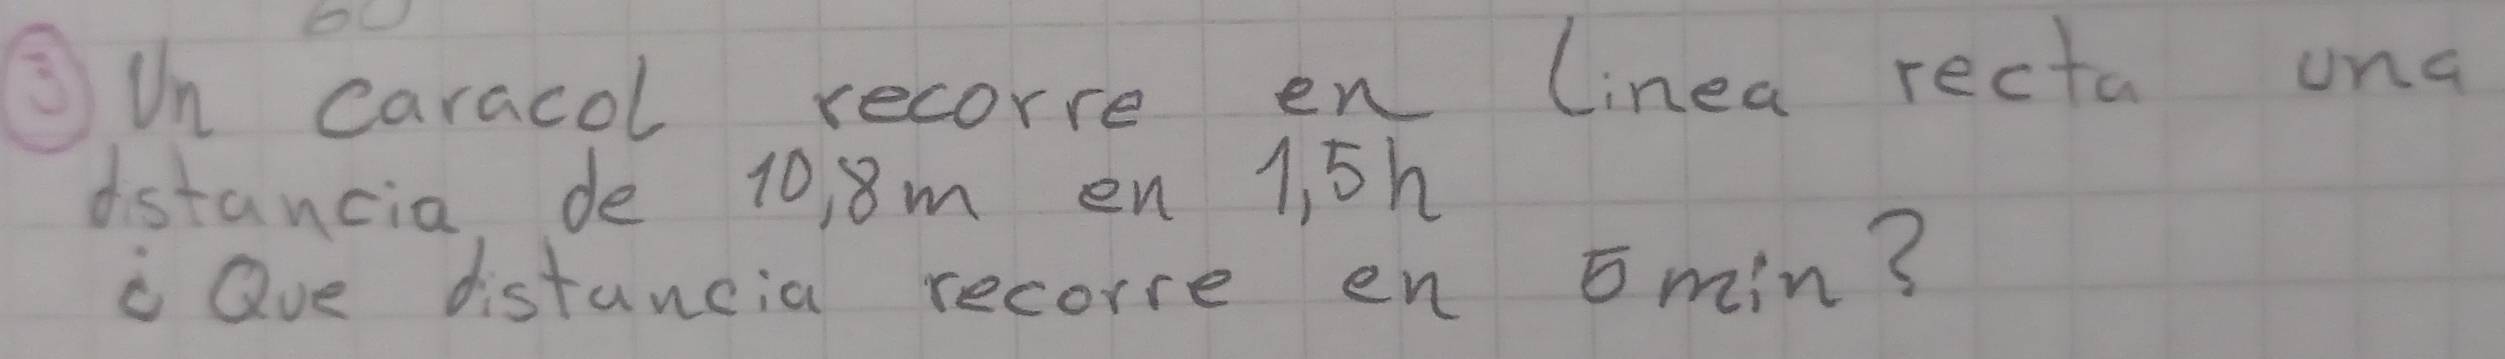 60
③ Un caracol recorre en linea recta una
distancia, de 10,8m en 1,5h
¿ Que distancia recorre en 5 min?